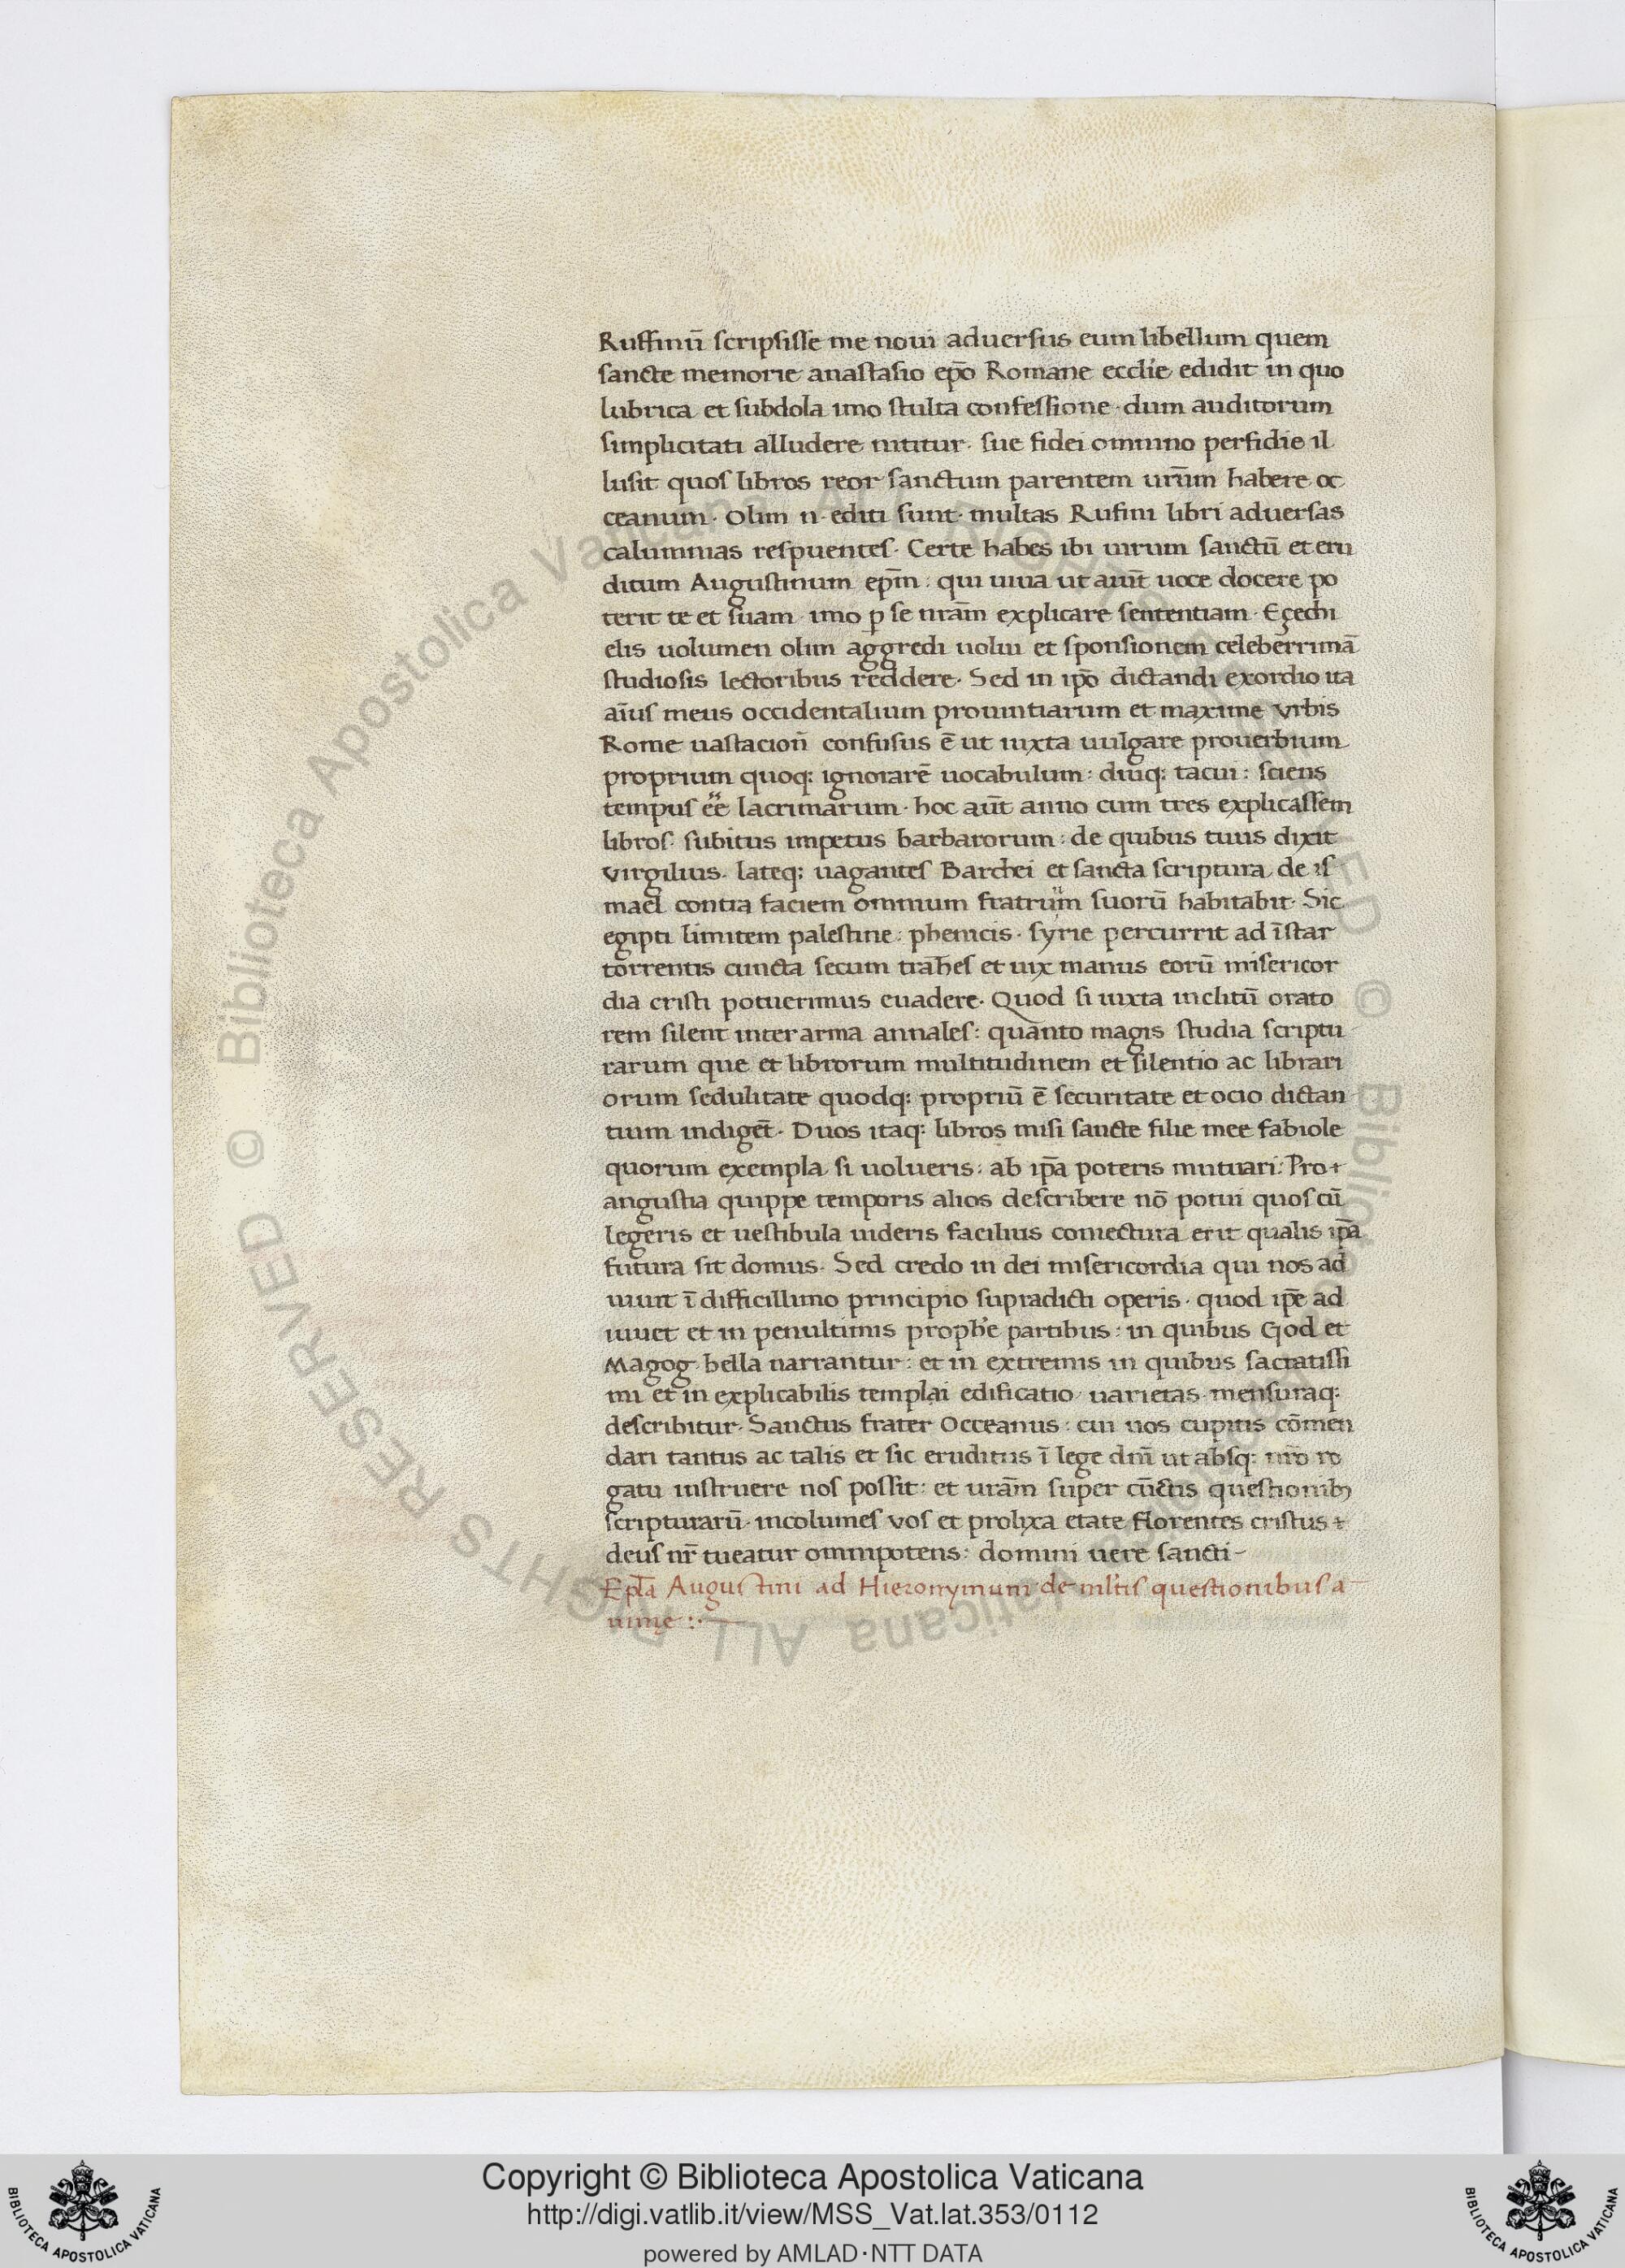 Ruffinū scripsisse me noui aduersus eum libellum quem
sancte memorie anastasio ep̄o Romane eccl̄ie edidit in quo
lubrica et subdola imo stulta confessione · dum auditorum
simplicitati alludere nititur · sue fidei omnino perfidie il
lusit quos libros reor sanctum parentem ur̄um habere oc
ceanum · Olim n · editi sunt · multas Rufini libri aduersas
calumnias respuentes · Certe habes ibi uirum sanctū et eru
ditum Augustinum ep̄m : qui uiua ut aiūt uoce docere po
terit te et suam · imo ꝑ se nrām explicare sententiam · Eçechi
elis uolumen olim aggredi uolui et sponsionem celeberrimā
studiosis lectoribus reddere · Sed in ip̄o dictandi exordio ita
aīus meus occidentalium prouintiarum et maxime vrbis
Rome uastacioñ confusus ē ut iuxta uulgare prouerbium
proprium quoq: ignorarē uocabulum : diuq: tacui : sciens
tempus ēē lacrimarum · hoc aūt anno cum tres explicassem
libros · subitus impetus barbarorum : de quibus tuus dixit
virgilius · lateq: uagantes Barchei et sancta scriptura de is
mael contra faciem omnium fratrum suorū habitabit · Sic
egipti limitem palestine : phenicis · syrie percurrit ad īstar
torrentis cuncta secum trahēs et uix manus eorū misericor
dia cristi potuerimus euadere · Quod si iuxta inclitū orato
rem silent inter arma annales : quanto magis studia scriptu
rarum que et librorum multitudinem et silentio ac librari
orum sedulitate quodq: propriū ē securitate et ocio dictan
tium indigēt · Duos itaq: libros misi sancte filie mee fabiole
quorum exempla si uolueris : ab ip̄a poteris mutuari : Pro
angustia quippe temporis alios describere nō potui quos cū
legeris et uestibula uideris facilius coniectura erit qualis ip̄a
futura sit domus · Sed credo in dei misericordia qui nos ad
iuuit ī difficillimo principio supradicti operis · quod ip̄e ad
iuuet et in penultimis prophē partibus : in quibus God et
Magog bella narrantur : et in extremis in quibus sacratissi
mi et in explicabilis templai edificatio uarietas mensuraq:
describitur · Sanctus frater Occeanus : cui uos cupitis cōmen
dari tantus ac talis et sic eruditus ī lege dn̄i ut absq: nr̄o ro
gatu instruere nos possit : et urām super cūctis questionibꝫ
scripturarū · incolumes vos et prolixa etate florentes cristus
deus nr̄ tueatur omnipotens : domini uere sancti -
Epl̄a Augustini ad Hieronymum de ml̄tis questionibus a
nimę :·
Copyright © Biblioteca Apostolica Vaticana
http://digi.vatlib.it/view/MSS_Vat.lat.353/0112
powered by AMLAD·NTT DATA
BIBLIOTECA APOSTOLICA VATICANA
BIBLIOTECA APOSTOLICA VATICANA
© Biblioteca Apostolica Vaticana ALL RIGHTS RESERVED
© Biblioteca Apostolica Vaticana ALL RIGHTS RESERVED